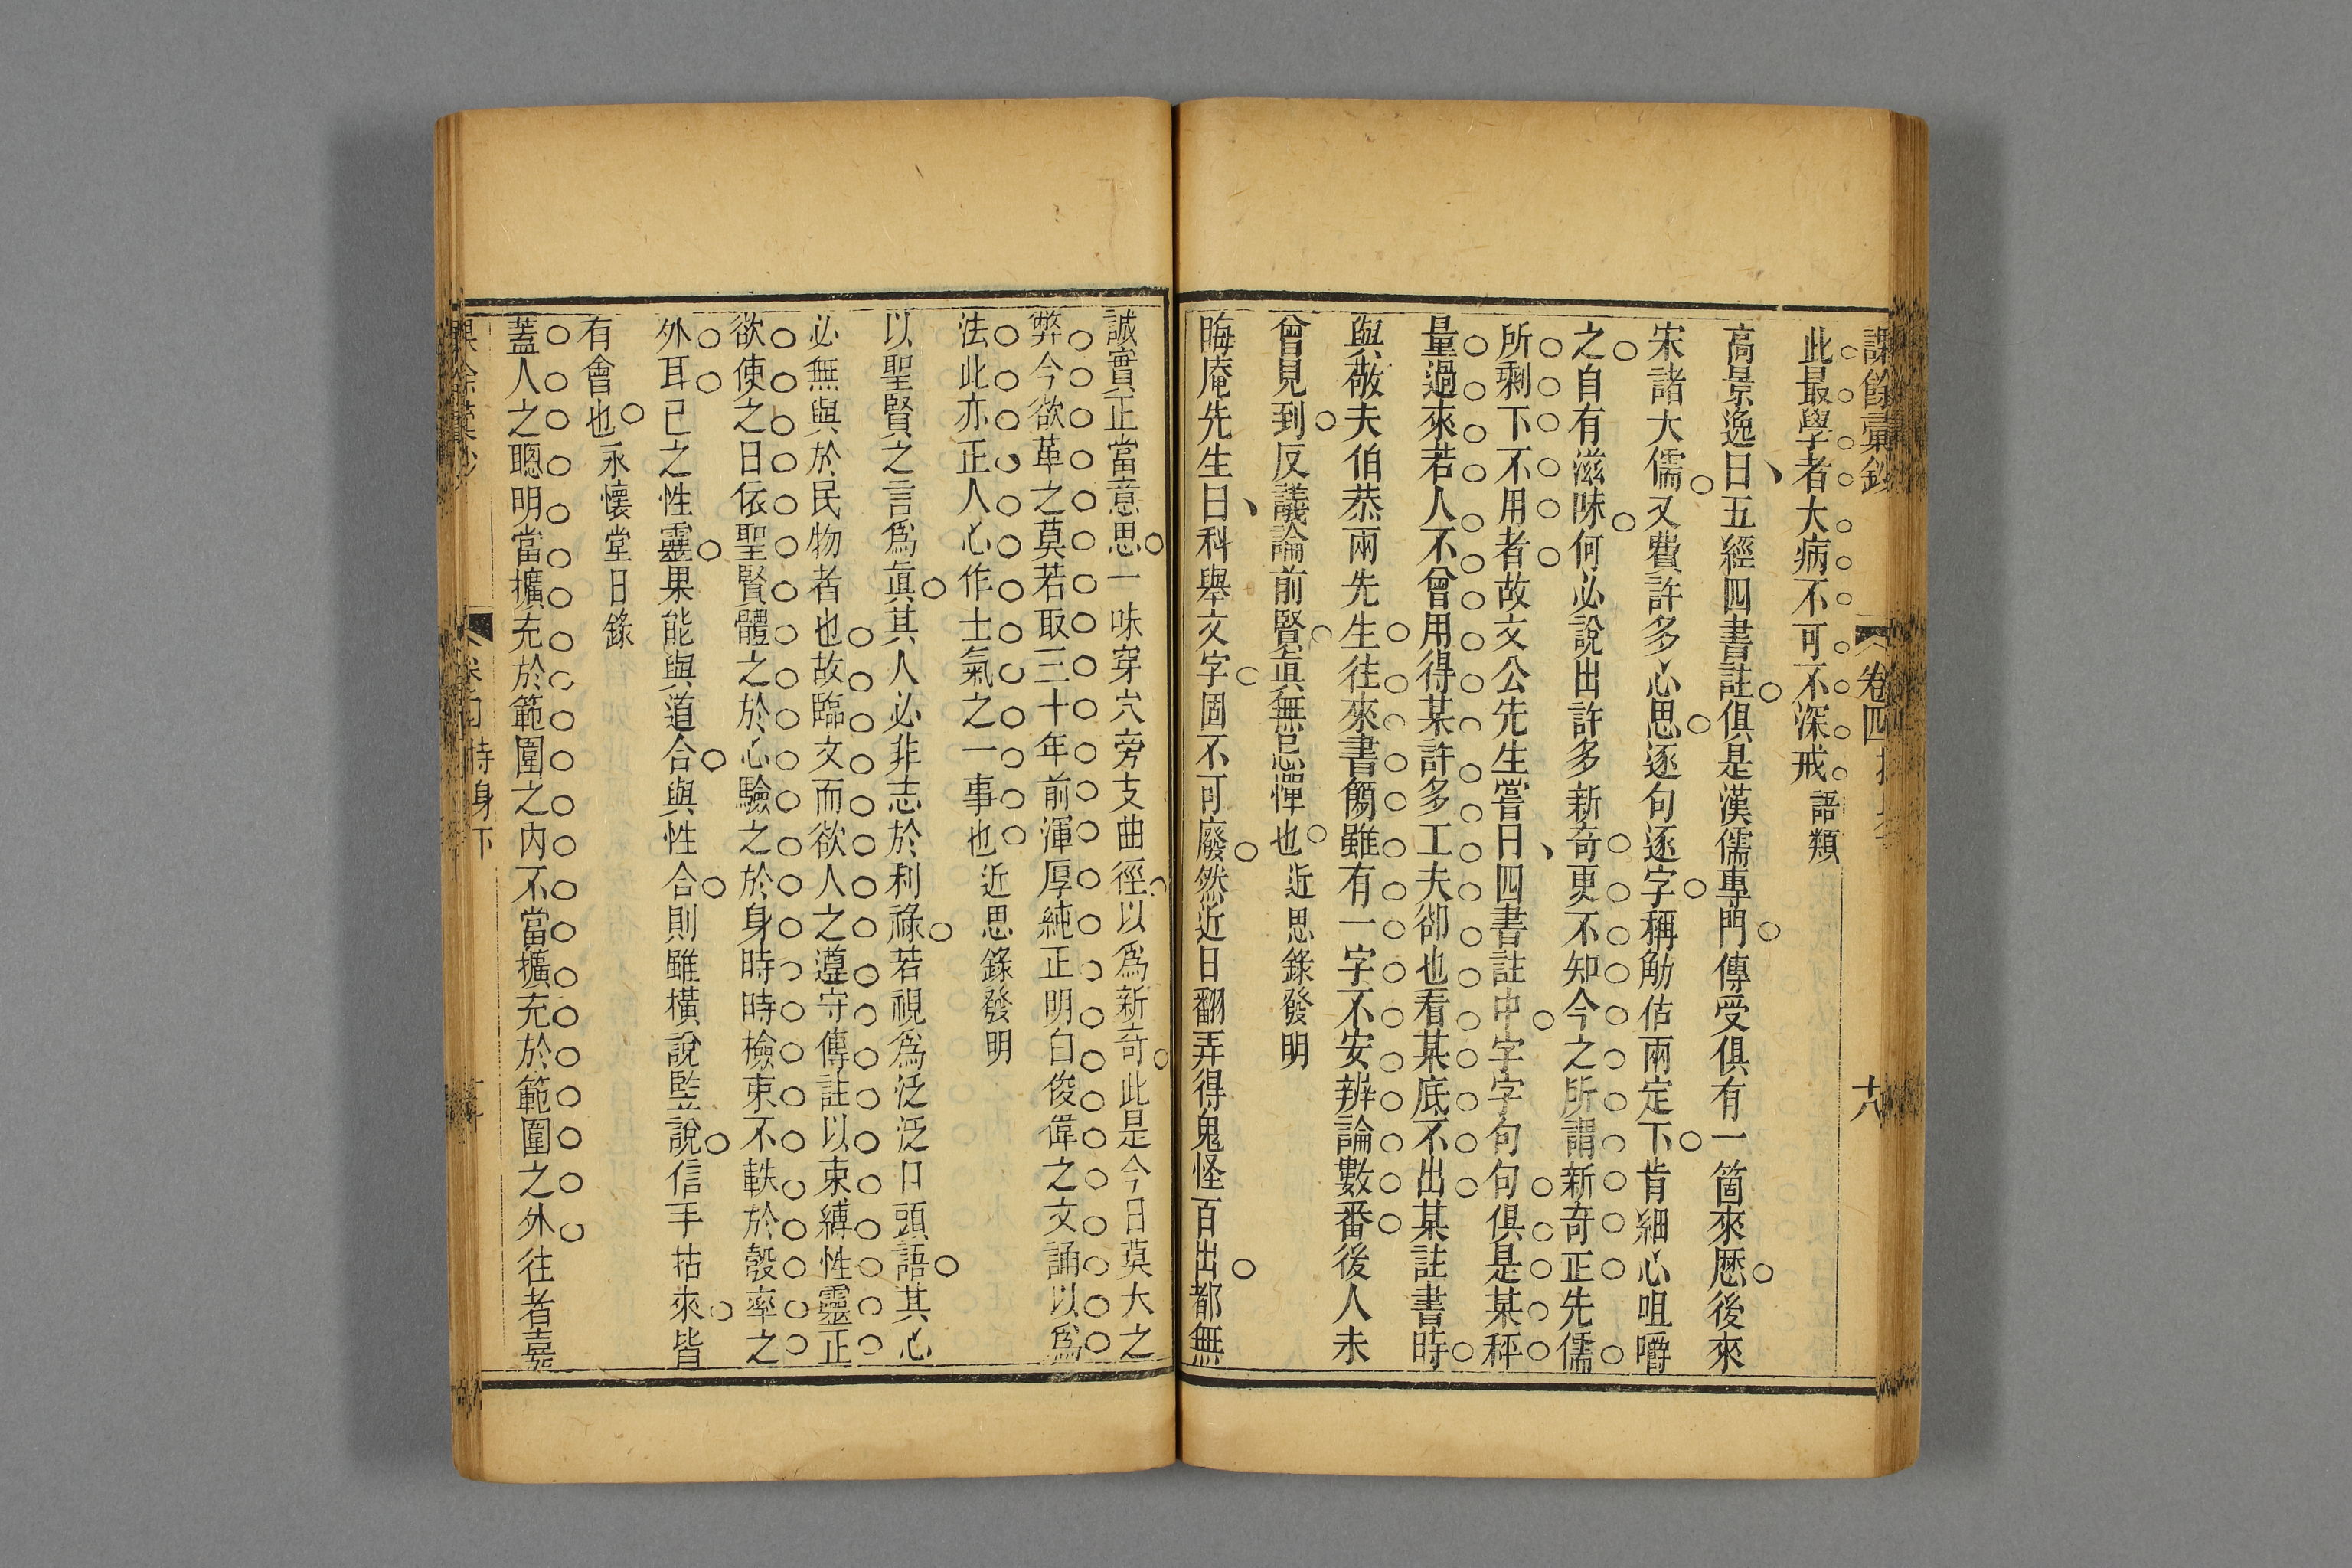 課餘彙鈔
卷四
十八
此最學者大病不可不深戒 語類
高景逸曰五經四書註俱是漢儒專門傳受俱有一箇來厯後來
宋諸大儒又費許多心思逐句逐字稱觔估兩定下肯細心咀嚼
之自有滋味何必說出許多新奇更不知今之所謂新奇正先儒
所剩下不用者故文公先生嘗曰四書註中字字句句俱是某秤
量過來若人不曾用得某許多工夫卻也看某底不出某註書時
與敬夫伯恭兩先生往來書簡雖有一字不安辨論數番後人未
曾見到反議論前賢眞無忌憚也 近思錄發明
晦庵先生曰科舉文字固不可廢然近日翻弄得鬼怪百出都無
誠實正當意思一味穿穴旁支曲徑以爲新奇此是今日莫大之
弊今欲革之莫若取三十年前渾厚純正明白俊偉之文誦以爲
法此亦正人心作士氣之一事也 近思錄發明
以聖賢之言爲眞其人必非志於利祿若視爲泛泛口頭語其心
必無與於民物者也故臨文而欲人之遵守傳註以束縛性靈正
欲使之日依聖賢體之於心驗之於身時時檢束不軼於彀率之
外耳已之性靈果能與道合與性合則雖橫說竪說信手拈來皆
有會也 永懷堂日錄
蓋人之聰明當擴充於範圍之內不當擴充於範圍之外往者嘉
時身下